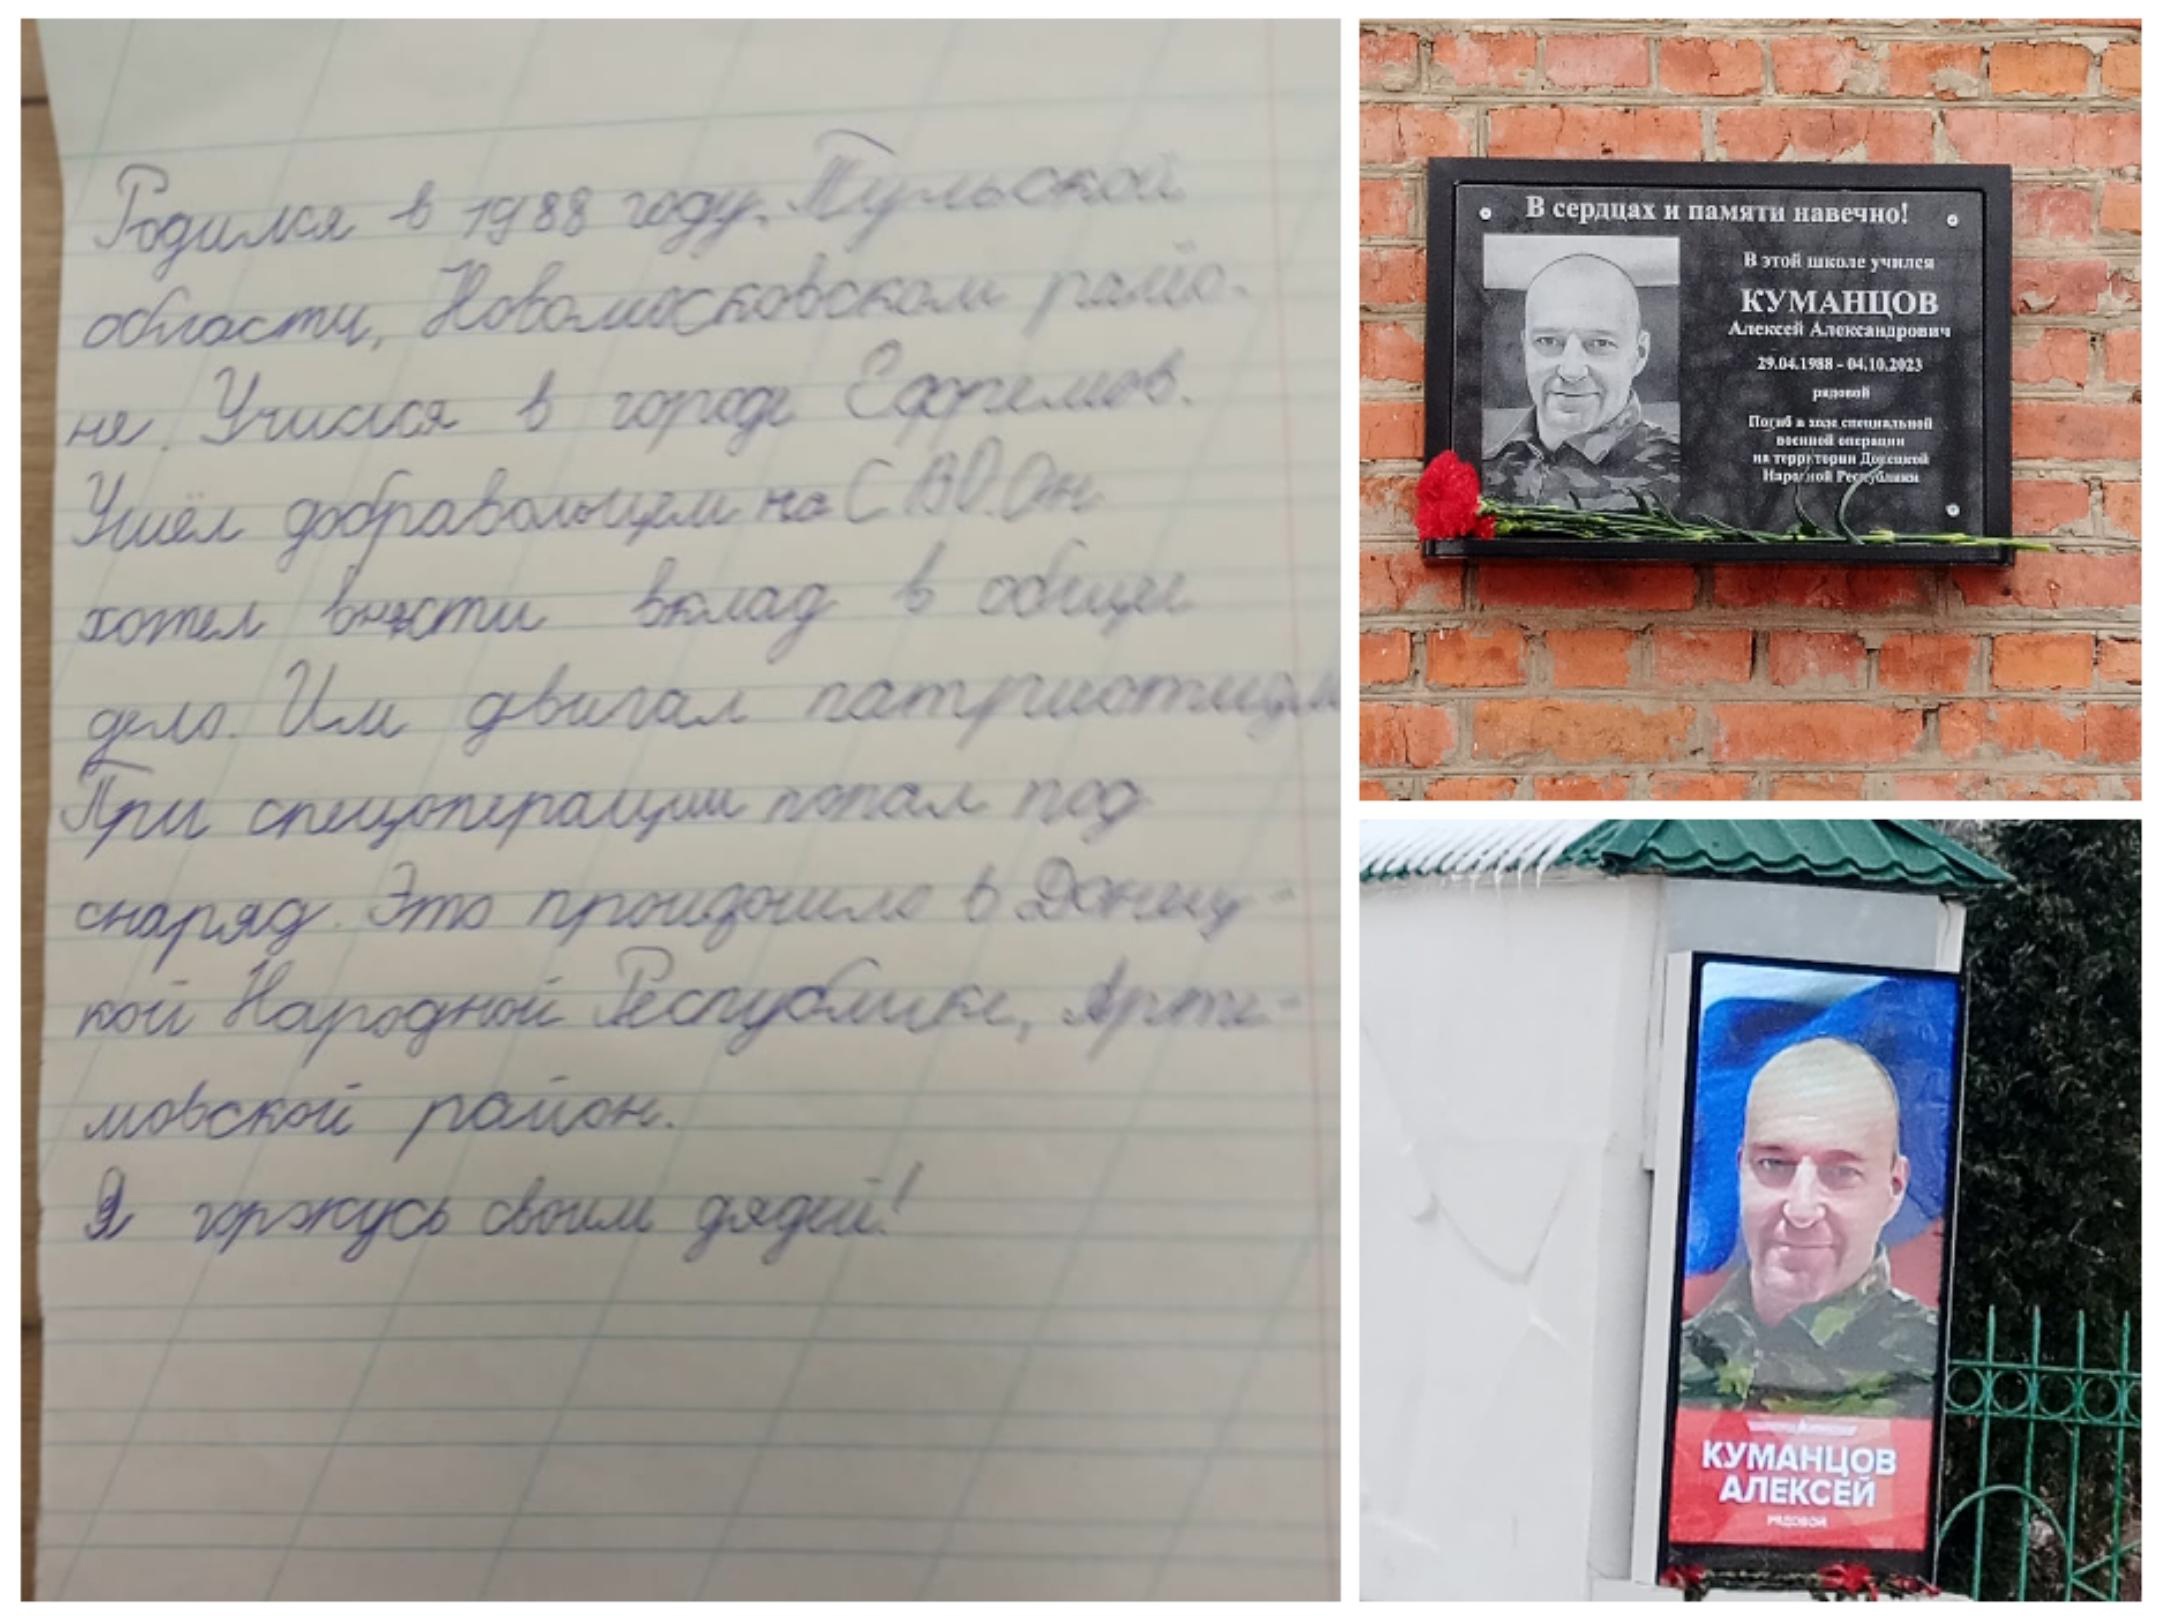 Родился в 1988 году. Тульской
области, Новомосковском райо-
не. Учился в городе Ефремов.
Ушёл добравольцем на СВО. Он
хотел внести вклад в общее
дело. Им двигал патриотизм
При спецоперации попал под
снаряд. Это произошло в Донец-
кой Народной Республике, Арте-
мовской район.
Я горжусь своим дядей!
В сердцах и памяти навечно!
В этой школе учился
КУМАНЦОВ
Алексей Александрович
29.04.1988 - 04.10.2023
рядовой
Погиб в ходе специальной
военной операции
на территории Донецкой
Народной Республики
КУМАНЦОВ
АЛЕКСЕЙ
РЯДОВОЙ